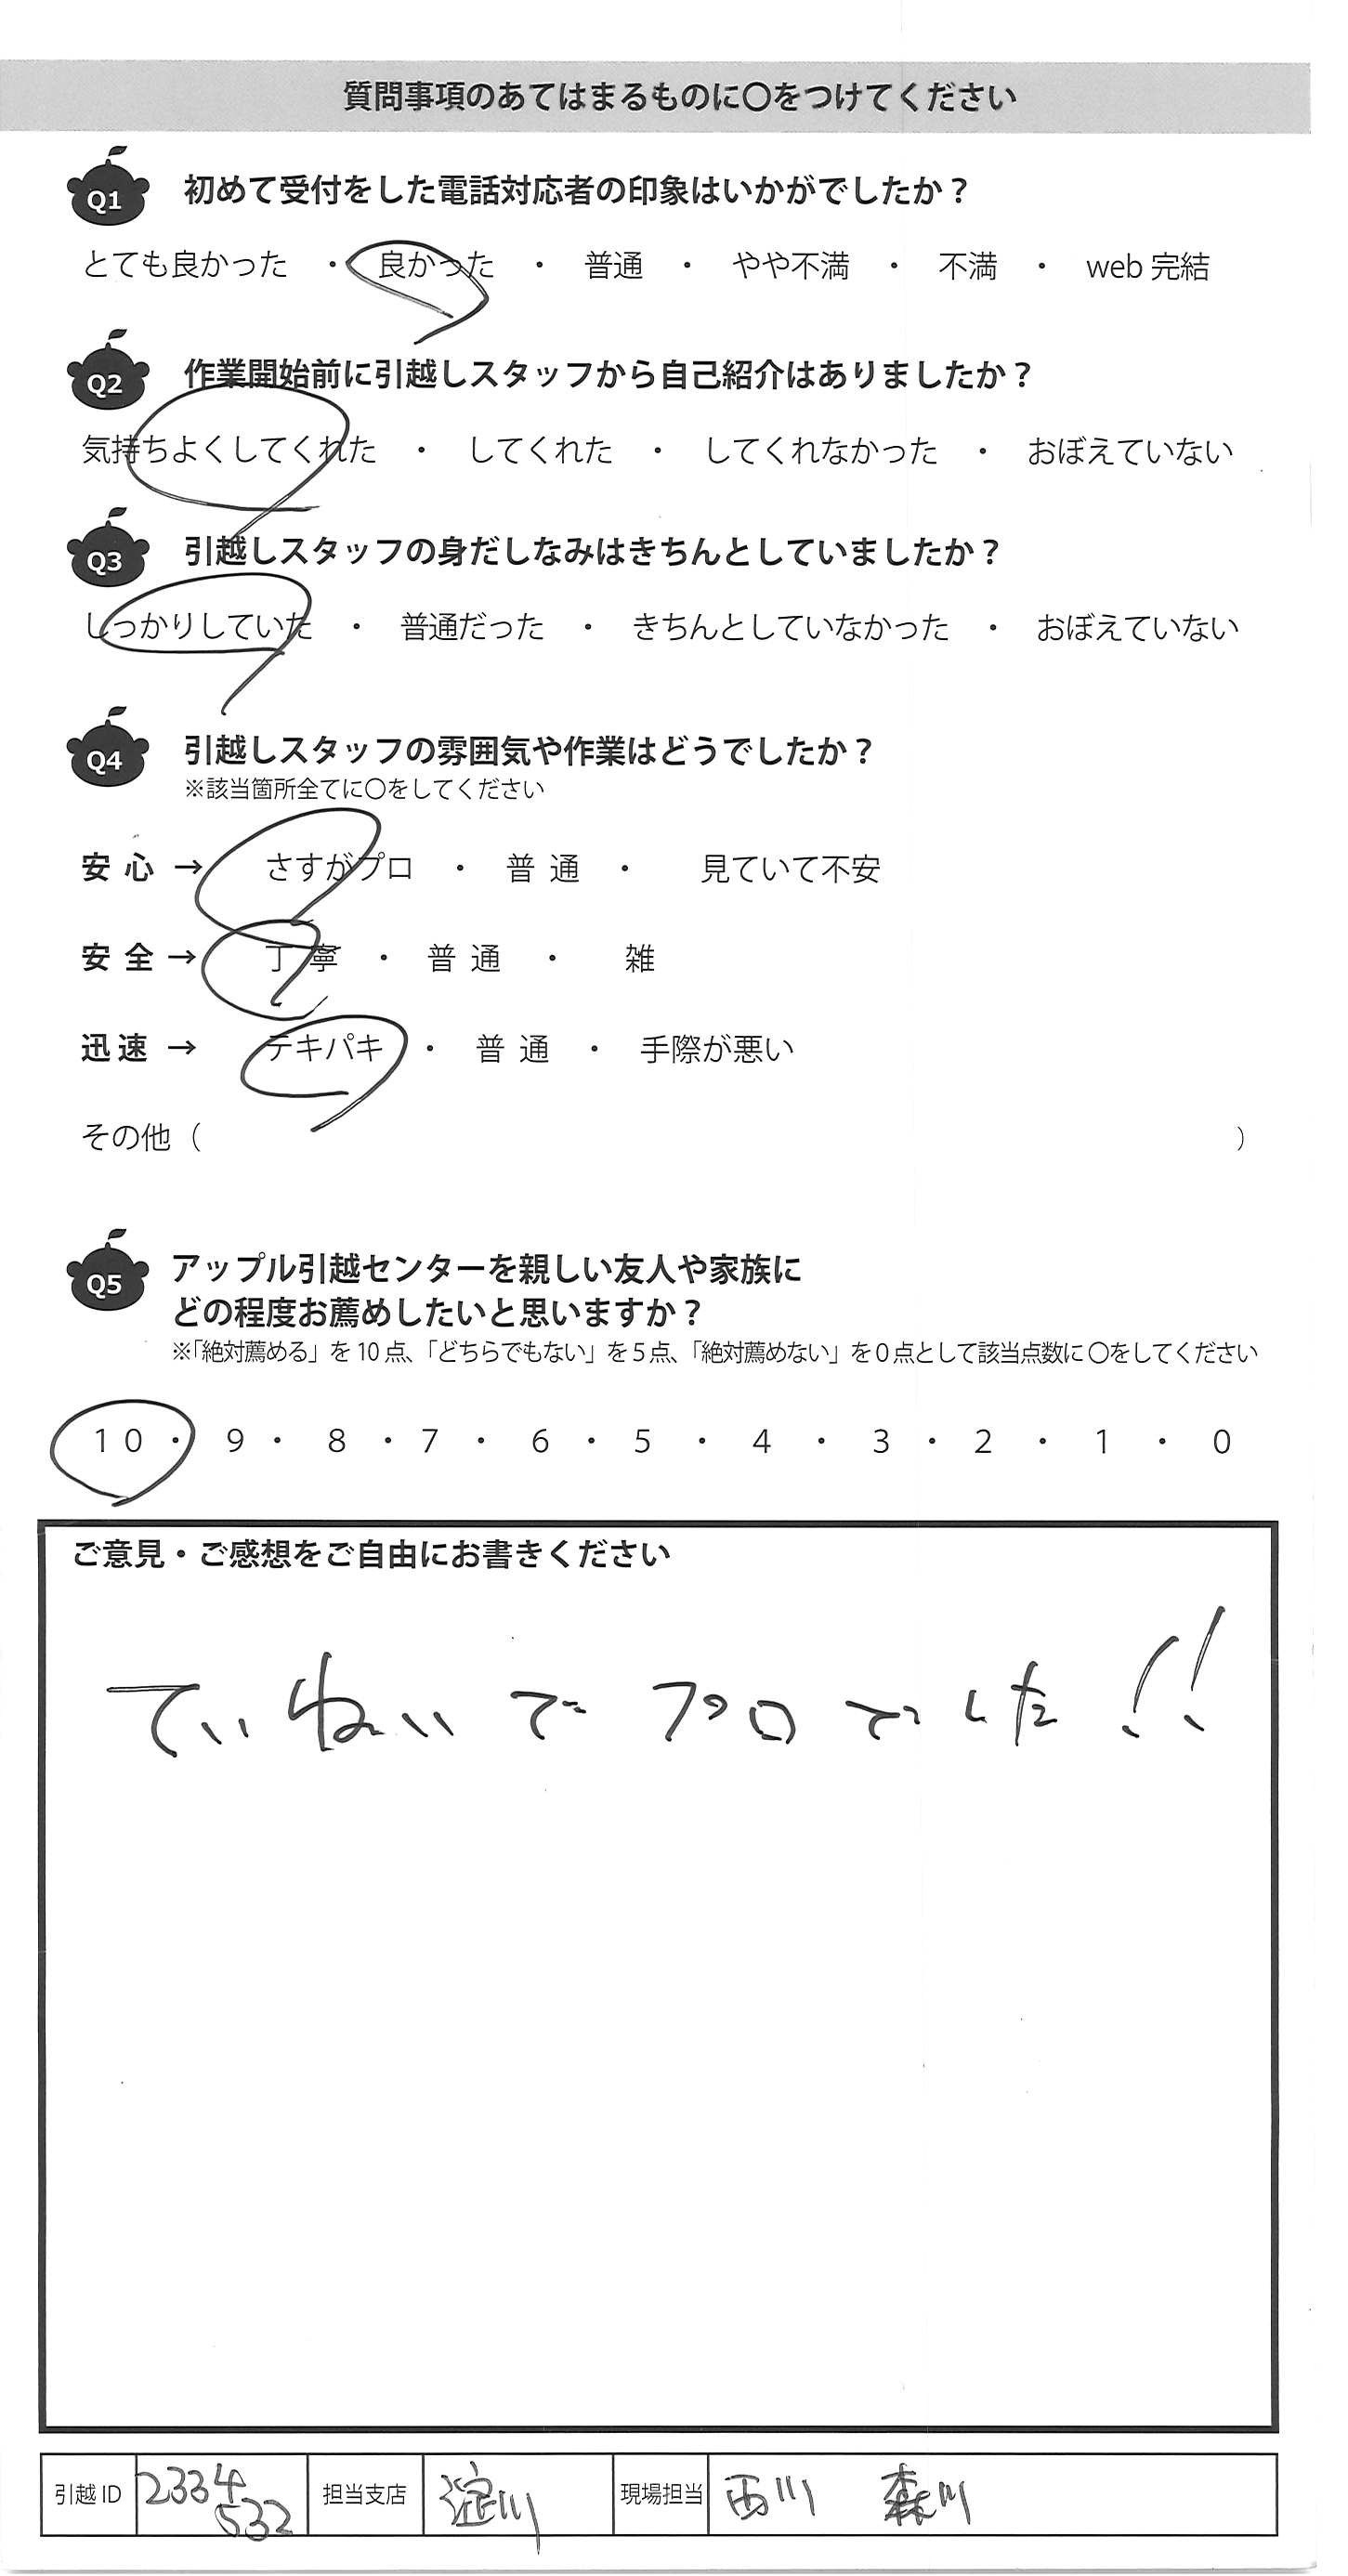 質問事項のあてはまるものに〇をつけてください
Q1 初めて受付をした電話対応者の印象はいかがでしたか？
とても良かった ・ 良かった ・ 普通 ・ やや不満 ・ 不満 ・ web 完結
Q2 作業開始前に引越しスタッフから自己紹介はありましたか？
気持ちよくしてくれた ・ してくれた ・ してくれなかった ・ おぼえていない
Q3 引越しスタッフの身だしなみはきちんとしていましたか？
しっかりしていた ・ 普通だった ・ きちんとしていなかった ・ おぼえていない
Q4 引越しスタッフの雰囲気や作業はどうでしたか？
※該当箇所全てに〇をしてください
安心 → さすがプロ ・ 普通 ・ 見ていて不安
安全 → 丁寧 ・ 普通 ・ 雑
迅速 → テキパキ ・ 普通 ・ 手際が悪い
その他（ ）
Q5 アップル引越センターを親しい友人や家族に
どの程度お薦めしたいと思いますか？
※「絶対薦める」を10点、「どちらでもない」を5点、「絶対薦めない」を0点として該当点数に〇をしてください
10 ・ 9 ・ 8 ・ 7 ・ 6 ・ 5 ・ 4 ・ 3 ・ 2 ・ 1 ・ 0
ご意見・ご感想をご自由にお書きください
ていねいで プロでした!!
引越ID 2334 担当支店 淀川 現場担当 西川 森川
532